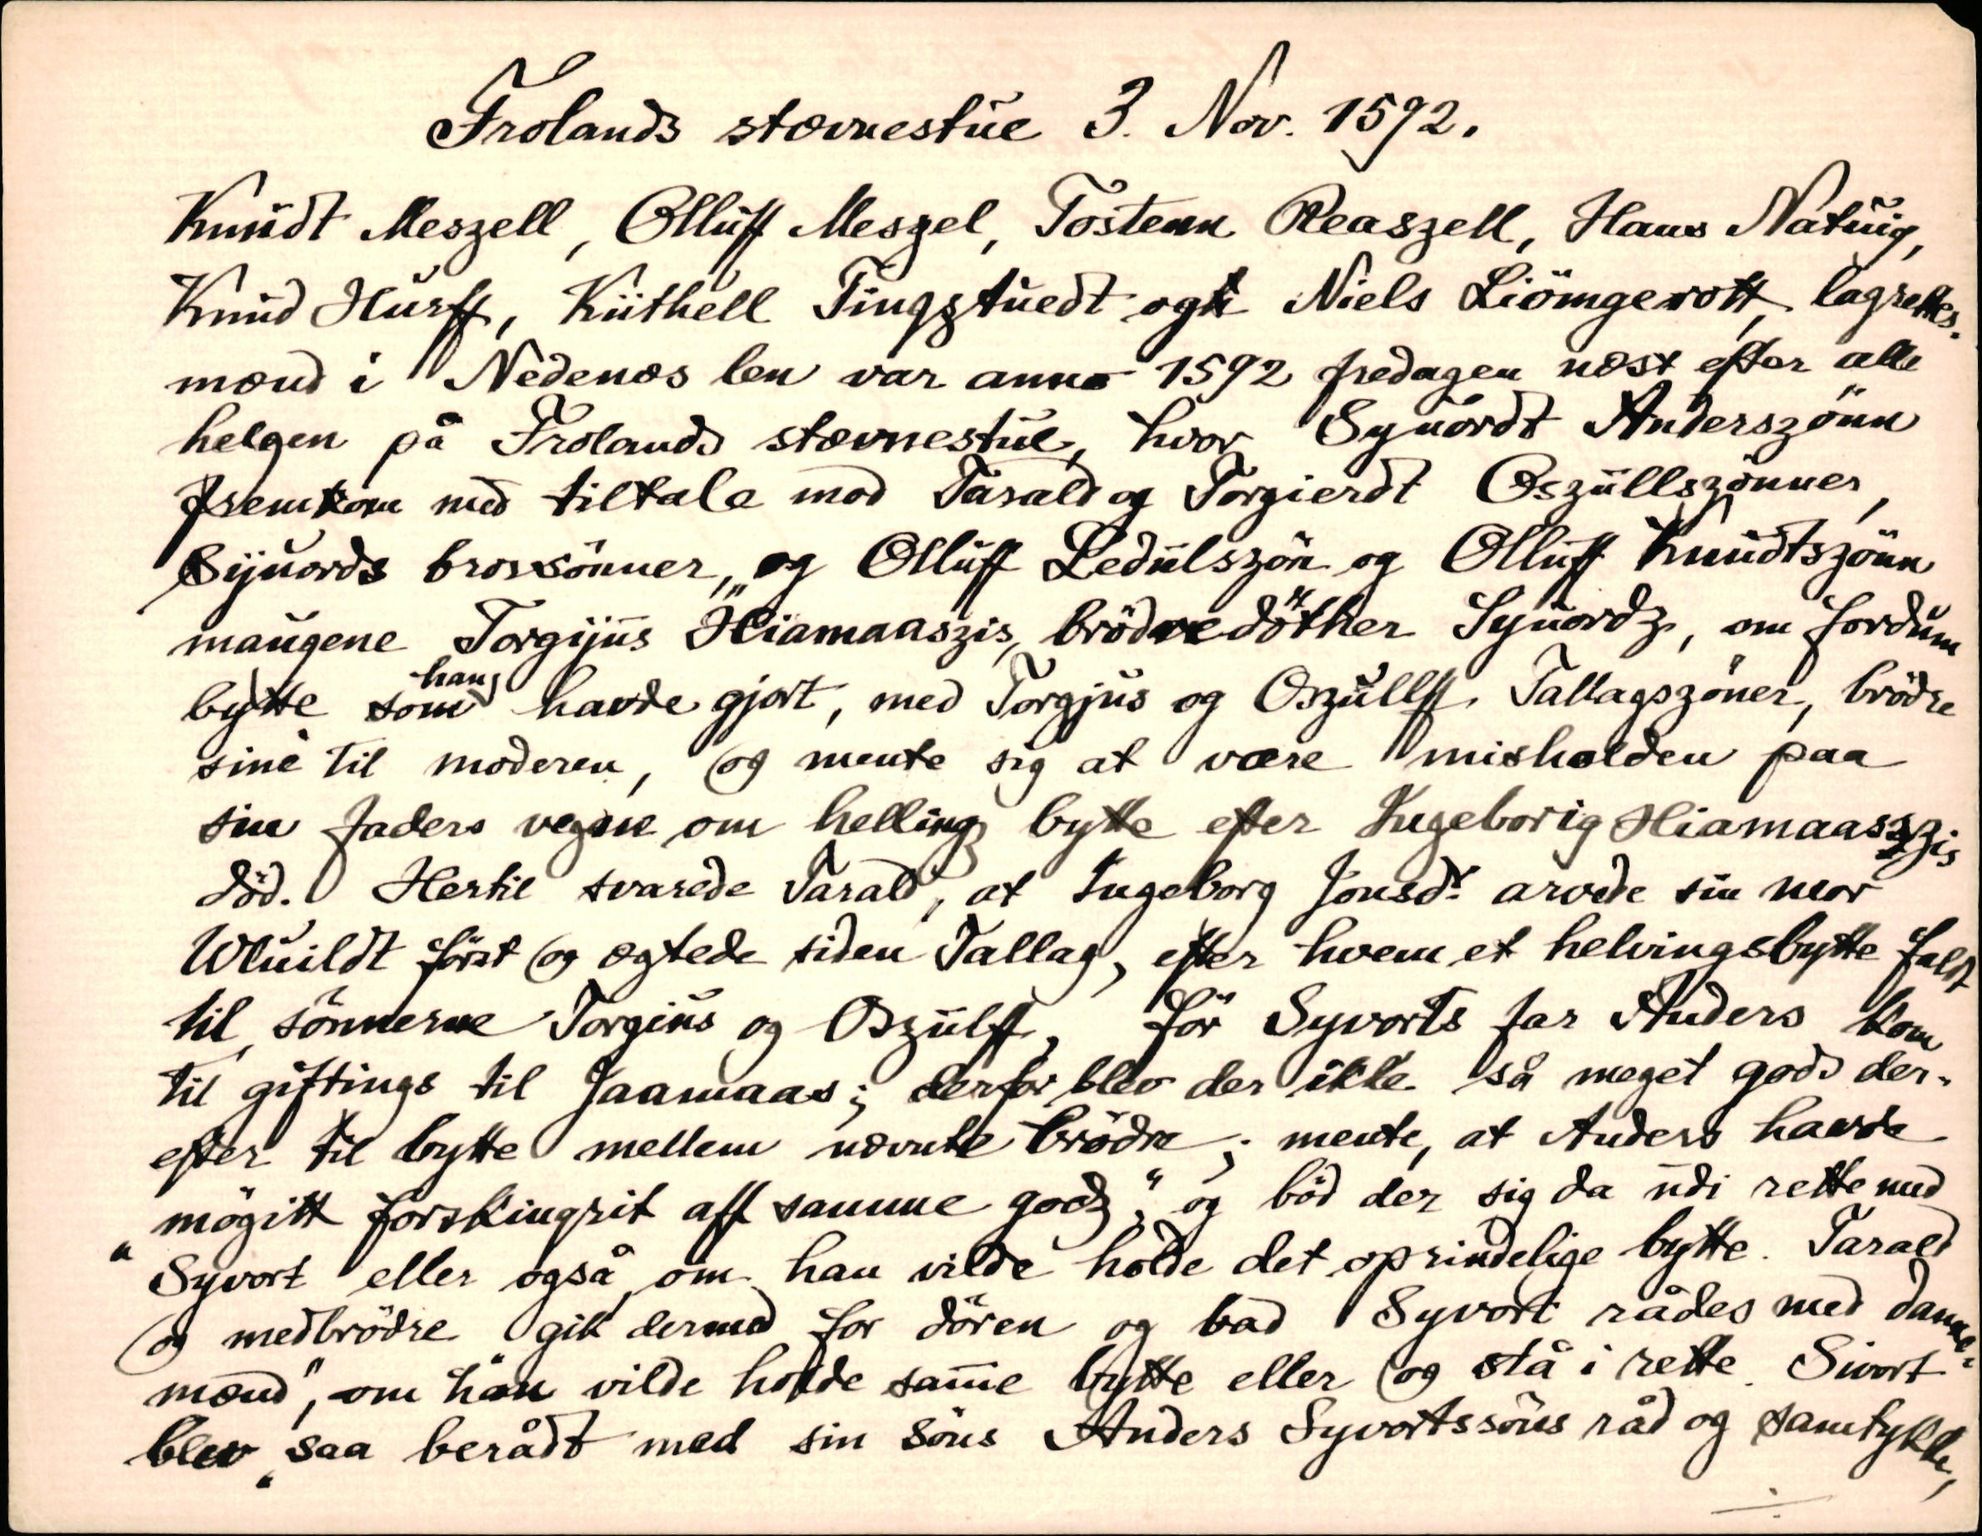 Frolands stævnestue 3. Nov. 1592.
Knudt Meszell, Olluff Meszel, Tostenn Reaszell, Hans Natuig,
Knud Hurff, Kiithell Tingztuedt ogh Niels Liömgerott, lagrettes-
mænd i Nedenæs len var anno 1592 fredagen næst efter alle
helgen på Frolands stævnestue, hvor Syuordt Anderszönn
fremkom med tiltale mod Tarald og Torgierdt Oszullszönner,
Syuords brorsönner, og Olluff Ledulszön og Olluff Knudtszönn
maugene Torgijus "Hiamaaszis, brödredöther" Syuordz, om fordum
bytte som han havde gjort, med Torgjus og Oszullff Tallagszöner, brödre
sine til moderen, og mente sig at være misholden paa
sin faders vegne om helling bytte efter Ingeborig Hiamaasszis
död. Hertil svarede Tarald, at Ingeborg Jonsdr. arvede sin mor
Wluildt först og ægtede siden Tallag, efter hvem et helvingsbytte faldt
til sönnerne Torgius og Oszulff, för Syvorts far Anders kom
til giftings til Jaamaas; derfor blev der ikke så meget gods der-
efter til bytte mellem nævnte brödre; mente, at Anders havde
mögitt forskingrit aff samme godz," og böd der sig da udi rette med
"Syvort eller også, om han vilde holde det oprindelige bytte. Tarald
og medbrödre gik dermed for dören og bad Syvort rådes med danne-
mænd", om han vilde holde samme bytte eller og stå i rette. Sivort
blev "saa berådt med sin söns Anders Syvortssöns råd og samtykke,
÷